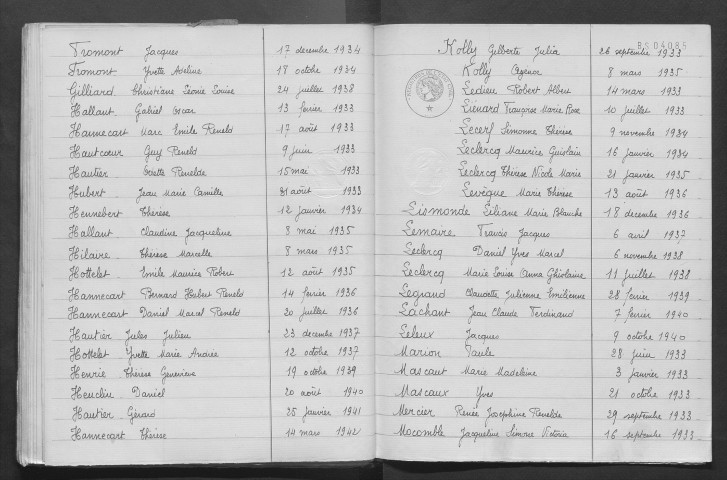 Fromont Jacques 17 decembre 1934
Fromont Yvette Adeline 18 octobre 1934
Gilliard Christiane Leonie Louise 24 juillet 1938
Hallant Gabriel Oscar 13 fevrier 1933
Hannecart Marc Emile Reneld 17 août 1933
Hautcoeur Guy Reneld 9 juin 1933
Hautier Renelde 15 mai 1933
Hubert Jean Marie Camille 31 août 1933
Hennebert Thérèse 12 janvier 1934
Hallant Claudine Jacqueline 8 mai 1935
Hilaire Thérèse Marcelle 8 mars 1935
Hottelet Emile Maurice Robert 12 août 1935
Hannecart Bernard Hubert Reneld 14 fevrier 1936
Hannecart Daniel Marcel Reneld 20 juillet 1936
Hautier Jules Julien 23 decembre 1937
Hottelet Yvette Marie Andrée 12 octobre 1937
Henrie Thérèse Genevieve 19 octobre 1939
Heuclin Daniel 20 août 1940
Hautier Gérard 25 janvier 1941
Hannecart Thérèse 14 mars 1942
BS04085
Kolly Gilberte Julia 26 septembre 1933
Kolly 8 mars 1935
Ledieu Robert Albert 14 mars 1933
Liénard Françoise Marie Rose 10 juillet 1933
Lecerf Simonne Thérèse 9 novembre 1934
Leclercq Maurice Guislain 16 janvier 1934
Leclercq Thérèse Nicole Marie 21 janvier 1935
Levêque Marie Thérèse 13 août 1936
Lismonde Liliane Marie Blanche 18 decembre 1936
Lemaire Francis Jacques 6 avril 1937
Leclercq Daniel Yves Marcel 6 novembre 1938
Leclercq Marie Louise Anna Ghislaine 11 juillet 1938
Legrand Claudette Julienne Emilienne 28 fevrier 1939
Lachant Jean Claude Ferdinand 7 fevrier 1940
Leleux Jacques 9 octobre 1940
Marion Paule 28 juin 1933
Mascaut Marie Madeline 3 janvier 1933
Mascaux Yves 21 octobre 1933
Mercier Renée Josephine Renelde 29 septembre 1933
Mocomble Jacqueline Simone Victoria 16 septembre 1933